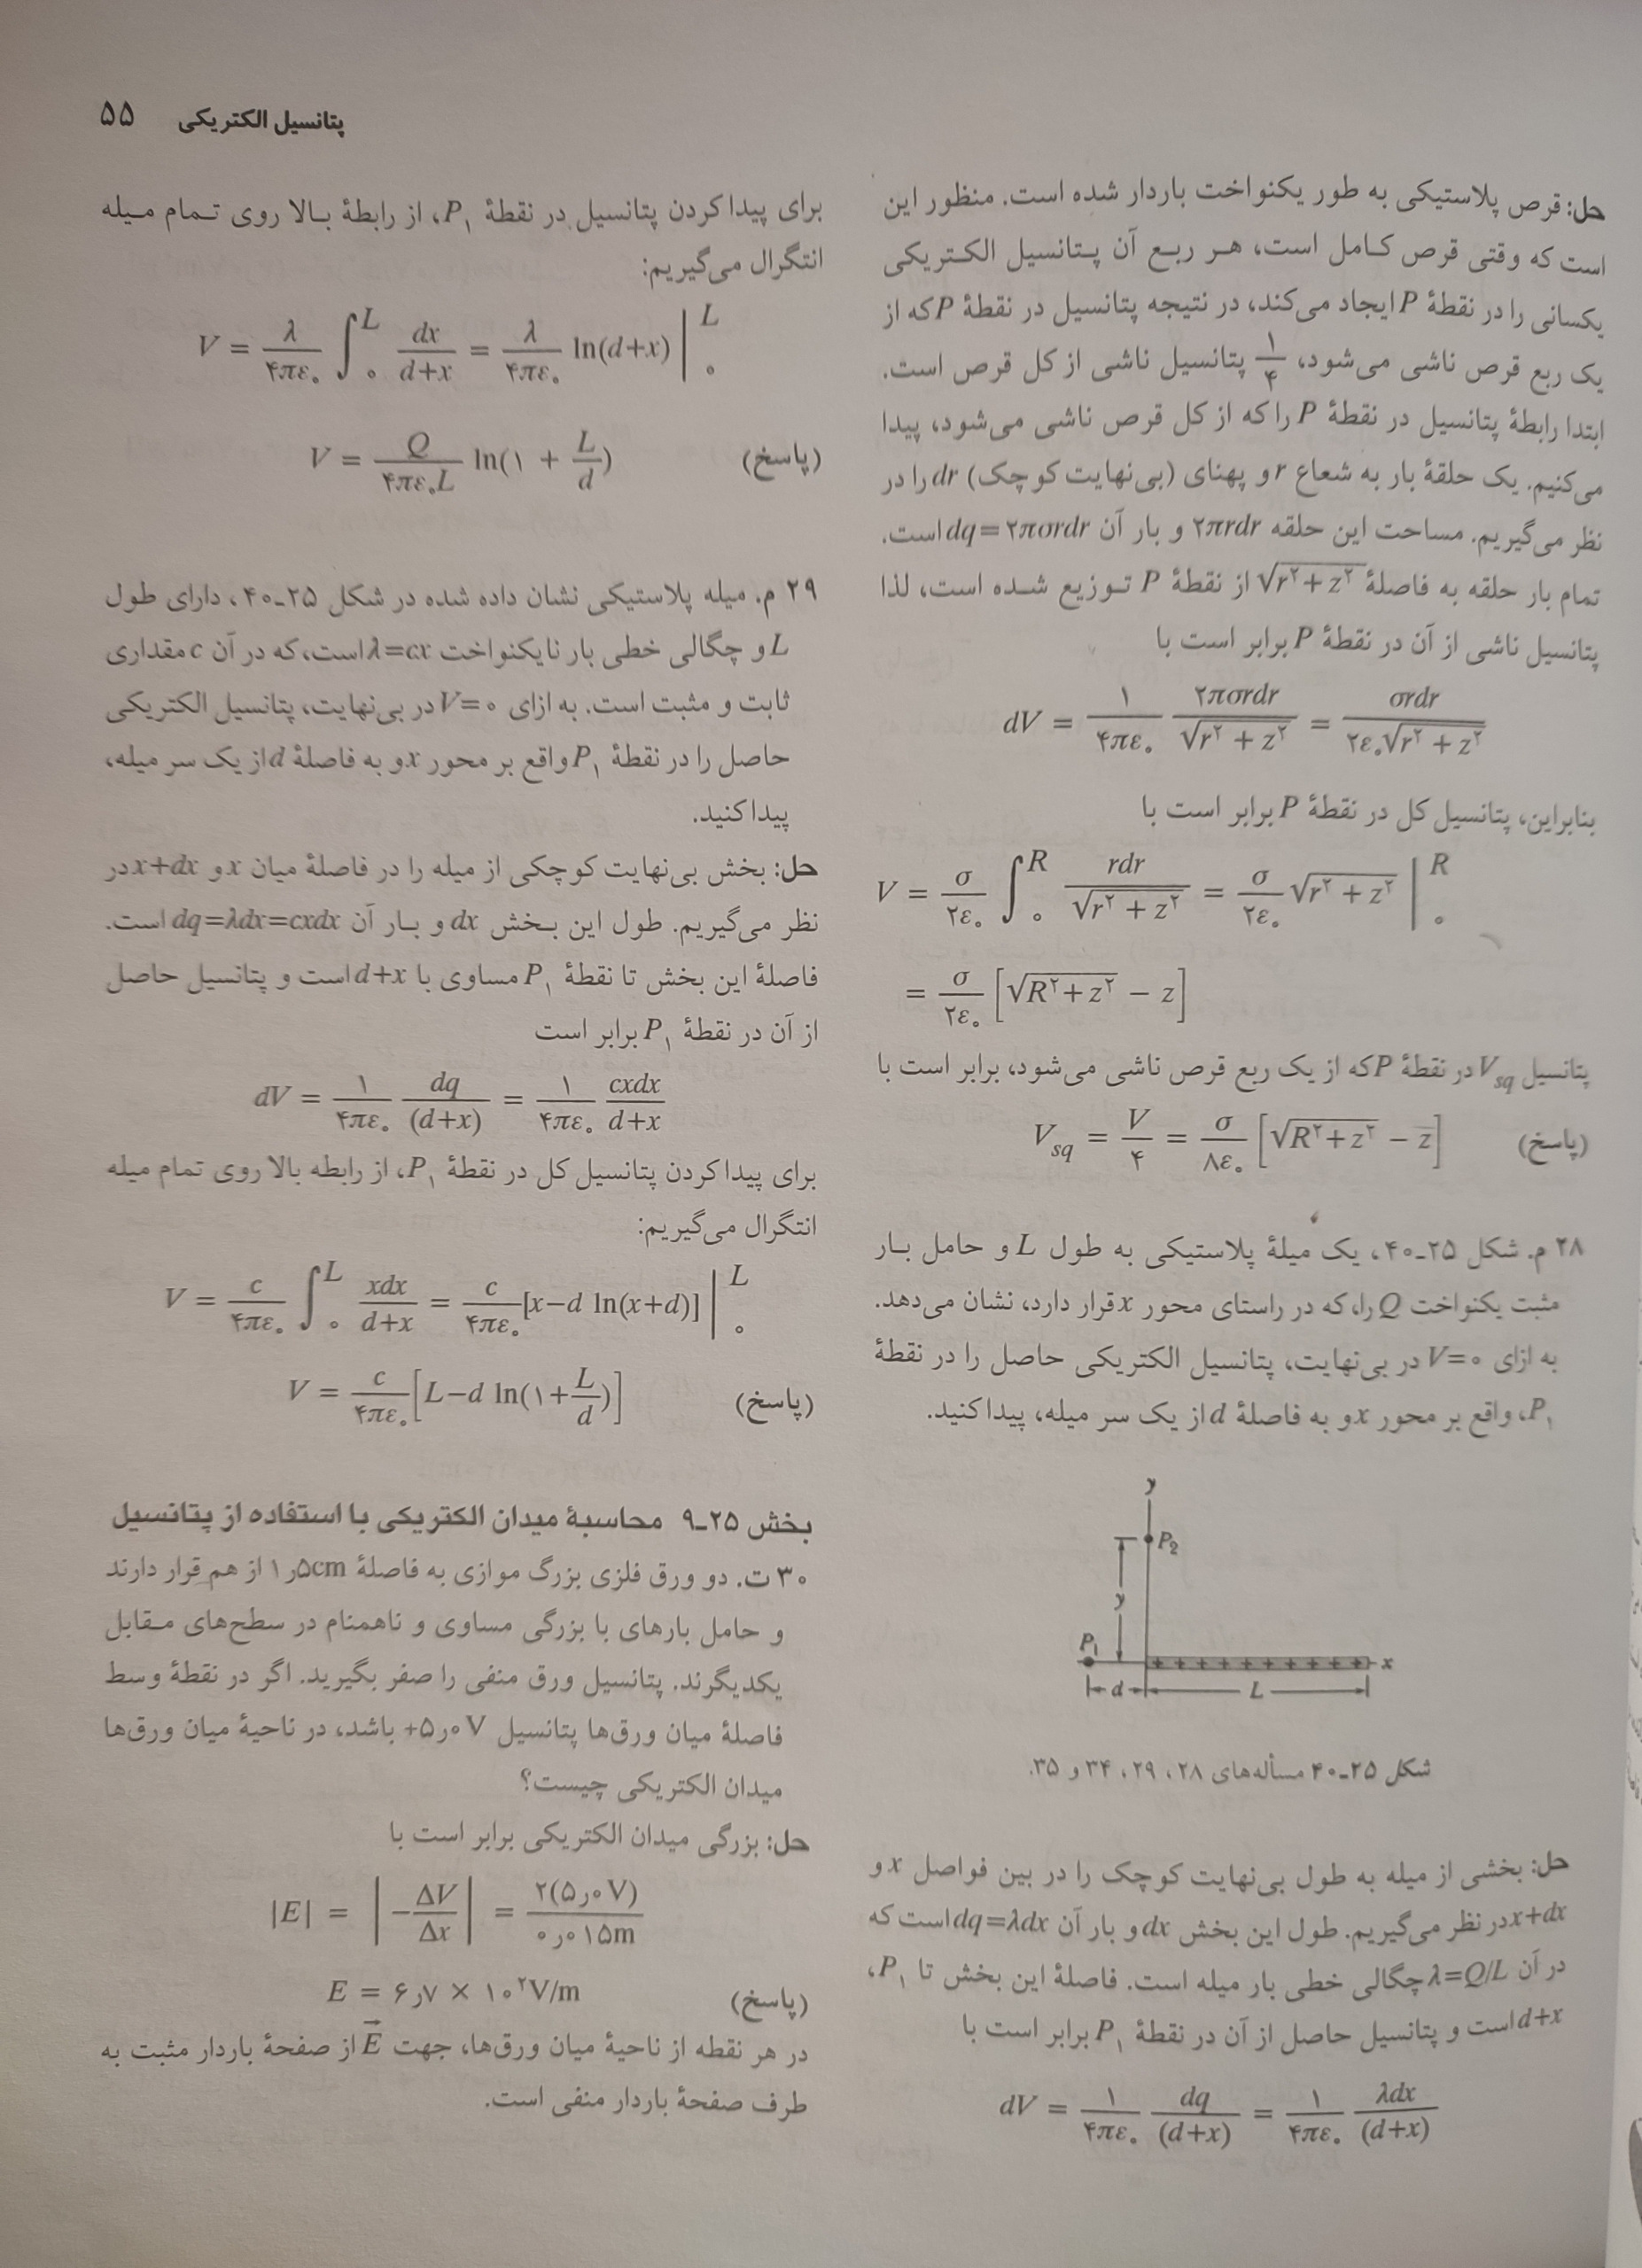 پتانسیل الکتریکی ۵۵
حل: قرص پلاستیکی به طور یکنواخت باردار شده است. منظور این
است که وقتی قرص کامل است، هر ربع آن پتانسیل الکتریکی
یکسانی را در نقطهٔ P ایجاد می‌کند، در نتیجه پتانسیل در نقطهٔ P که از
یک ربع قرص ناشی می‌شود، ۱/۴ پتانسیل ناشی از کل قرص است.
ابتدا رابطهٔ پتانسیل در نقطهٔ P را که از کل قرص ناشی می‌شود، پیدا
می‌کنیم. یک حلقهٔ بار به شعاع r و پهنای (بی‌نهایت کوچک) dr را در
نظر می‌گیریم. مساحت این حلقه ۲πrdr و بار آن dq=۲πσrdr است.
تمام بار حلقه به فاصلهٔ √(r^۲+z^۲) از نقطهٔ P توزیع شده است، لذا
پتانسیل ناشی از آن در نقطهٔ P برابر است با
dV = ۱/۴πε۰ ۲πσrdr/√(r^۲ + z^۲) = σrdr/۲ε۰√(r^۲ + z^۲)
بنابراین، پتانسیل کل در نقطهٔ P برابر است با
V = σ/۲ε۰ ∫۰^R rdr/√(r^۲ + z^۲) = σ/۲ε۰ √(r^۲ + z^۲) |۰^R
= σ/۲ε۰ [√(R^۲+z^۲) − z]
پتانسیل Vsq در نقطهٔ P که از یک ربع قرص ناشی می‌شود، برابر است با
Vsq = V/۴ = σ/۸ε۰ [√(R^۲+z^۲) − z] (پاسخ)
۲۸ م. شکل ۲۵-۴۰، یک میلهٔ پلاستیکی به طول L و حامل بار
مثبت یکنواخت Q را، که در راستای محور x قرار دارد، نشان می‌دهد.
به ازای V=۰ در بی‌نهایت، پتانسیل الکتریکی حاصل را در نقطهٔ
P۱، واقع بر محور x و به فاصلهٔ d از یک سر میله، پیدا کنید.
y
P2
y
P1
+ + + + + + + + + + x
d L
شکل ۲۵-۴۰ مسأله‌های ۲۸، ۲۹، ۳۴ و ۳۵.
حل: بخشی از میله به طول بی‌نهایت کوچک را در بین فواصل x و
x+dx در نظر می‌گیریم. طول این بخش dx و بار آن dq=λdx است که
در آن λ=Q/L چگالی خطی بار میله است. فاصلهٔ این بخش تا P۱،
d+x است و پتانسیل حاصل از آن در نقطهٔ P۱ برابر است با
dV = ۱/۴πε۰ dq/(d+x) = ۱/۴πε۰ λdx/(d+x)
برای پیدا کردن پتانسیل در نقطهٔ P۱، از رابطهٔ بالا روی تمام میله
انتگرال می‌گیریم:
V = λ/۴πε۰ ∫۰^L dx/d+x = λ/۴πε۰ ln(d+x) |۰^L
V = Q/۴πε۰L ln(۱ + L/d) (پاسخ)
۲۹ م. میله پلاستیکی نشان داده شده در شکل ۲۵-۴۰، دارای طول
L و چگالی خطی بار نایکنواخت λ=cx است، که در آن c مقداری
ثابت و مثبت است. به ازای V=۰ در بی‌نهایت، پتانسیل الکتریکی
حاصل را در نقطهٔ P۱ واقع بر محور x و به فاصلهٔ d از یک سر میله،
پیدا کنید.
حل: بخش بی‌نهایت کوچکی از میله را در فاصلهٔ میان x و x+dx در
نظر می‌گیریم. طول این بخش dx و بار آن dq=λdx=cxdx است.
فاصلهٔ این بخش تا نقطهٔ P۱ مساوی با d+x است و پتانسیل حاصل
از آن در نقطهٔ P۱ برابر است
dV = ۱/۴πε۰ dq/(d+x) = ۱/۴πε۰ cxdx/d+x
برای پیدا کردن پتانسیل کل در نقطهٔ P۱، از رابطه بالا روی تمام میله
انتگرال می‌گیریم:
V = c/۴πε۰ ∫۰^L xdx/d+x = c/۴πε۰ [x−d ln(x+d)] |۰^L
V = c/۴πε۰ [L−d ln(۱+L/d)] (پاسخ)
بخش ۲۵-۹ محاسبهٔ میدان الکتریکی با استفاده از پتانسیل
۳۰ ت. دو ورق فلزی بزرگ موازی به فاصلهٔ ۱٫۵cm از هم قرار دارند
و حامل بارهای با بزرگی مساوی و ناهمنام در سطح‌های مقابل
یکدیگرند. پتانسیل ورق منفی را صفر بگیرید. اگر در نقطهٔ وسط
فاصلهٔ میان ورق‌ها پتانسیل +۵٫۰V باشد، در ناحیهٔ میان ورق‌ها
میدان الکتریکی چیست؟
حل: بزرگی میدان الکتریکی برابر است با
|E| = |−ΔV/Δx| = ۲(۵٫۰V)/۰٫۰۱۵m
E = ۶٫۷ × ۱۰^۲V/m (پاسخ)
در هر نقطه از ناحیهٔ میان ورق‌ها، جهت E⃗ از صفحهٔ باردار مثبت به
طرف صفحهٔ باردار منفی است.